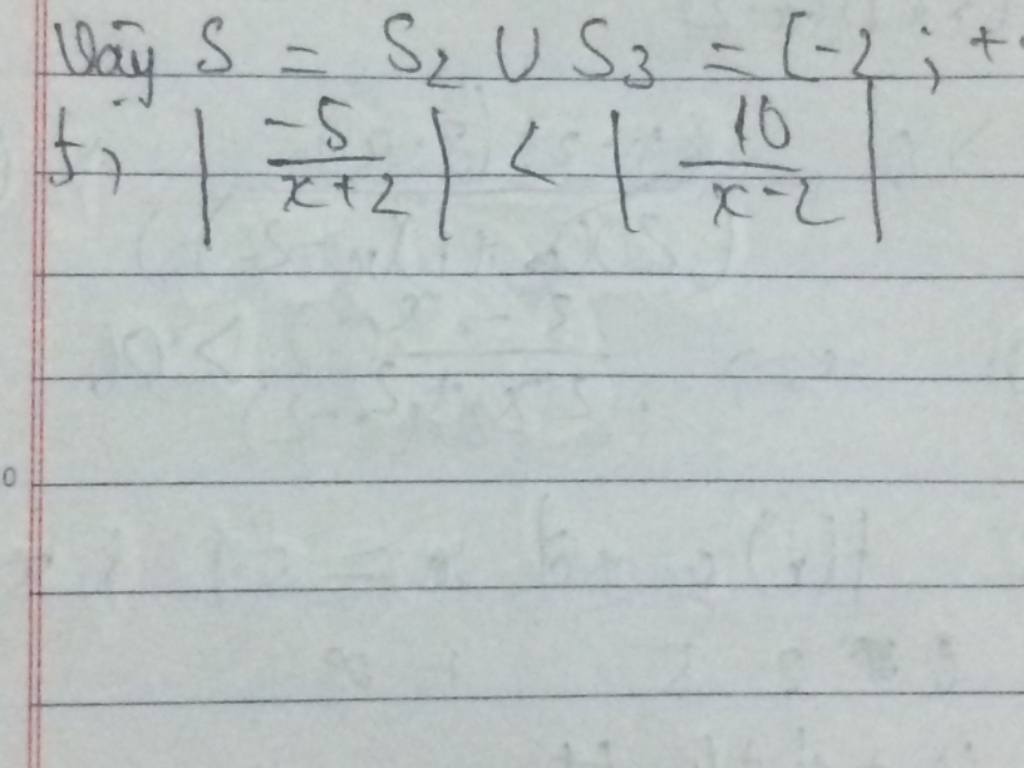 Vậy S = S₂ ∪ S₃ = [-2 ; +
f, | -5/(x+2) | < | 10/(x-2) |
0